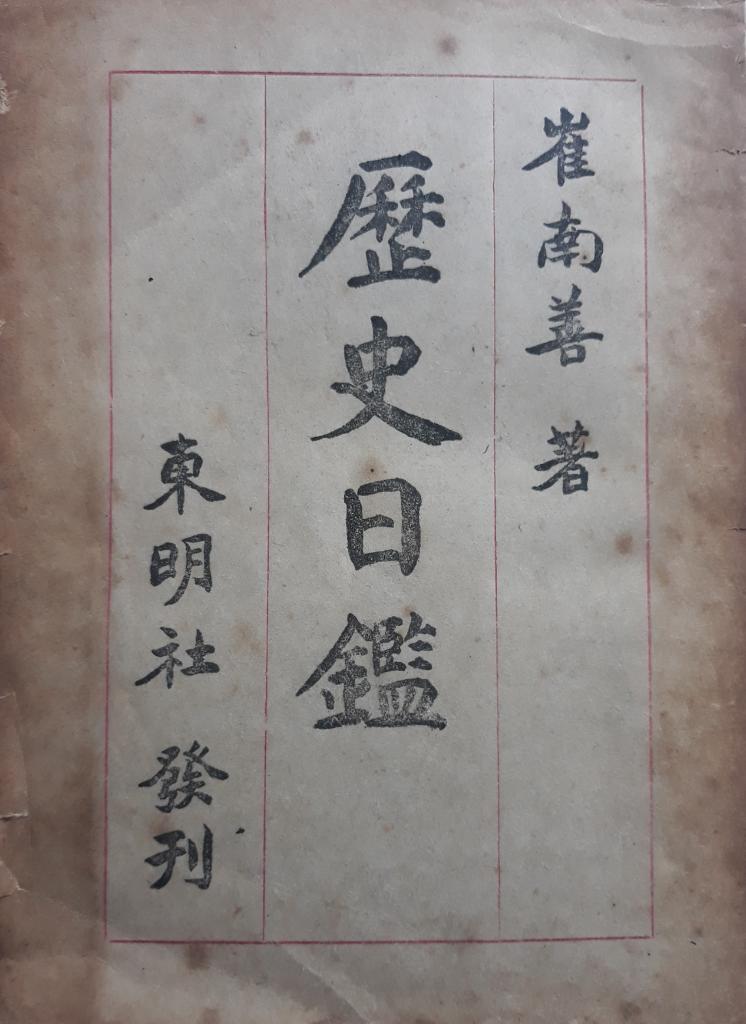 崔南善 著
歷史日鑑
東明社 發刊